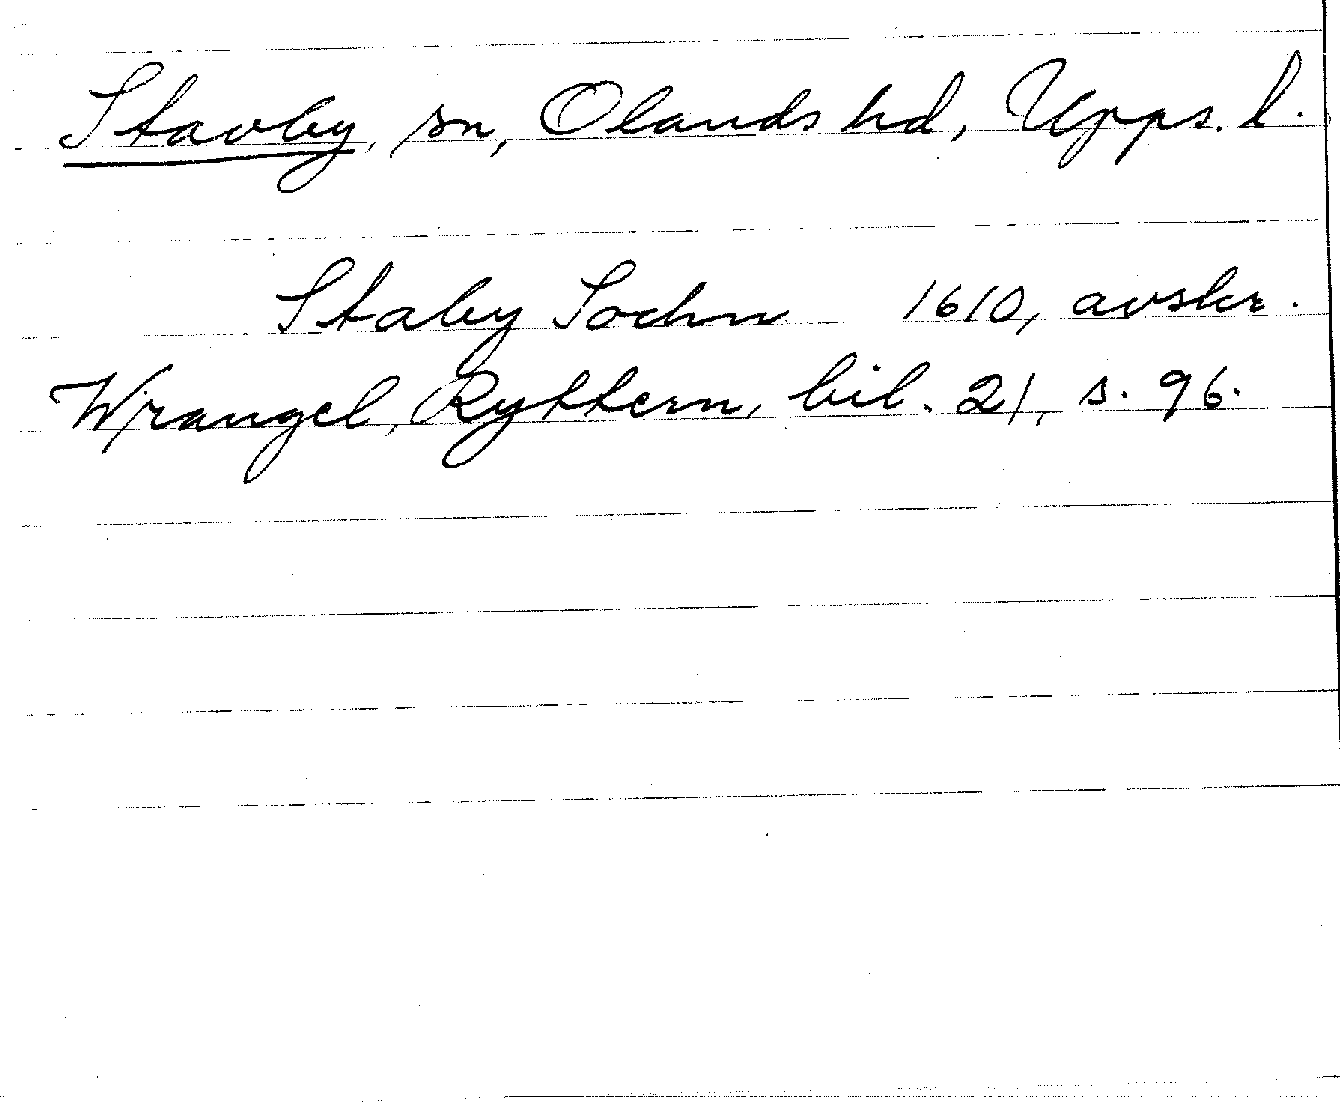 Stavby, sn, Olands hd, Upps. l.
Staby Sochn 1610, avskr.
Wrangel, Ryttern, bil. 21, s. 96.